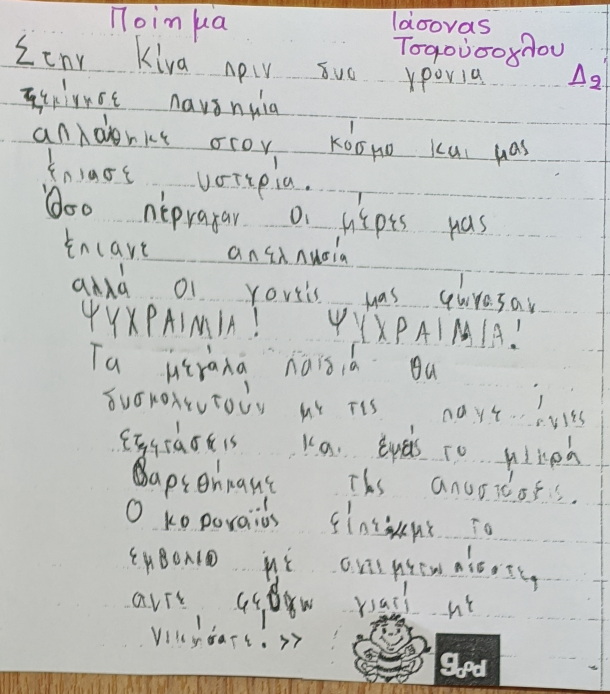 Ποίημα
Ιάσονας
Τσαούσογλου
Δ2
Στην Κίνα πριν δυο χρονια
ξεκίνησε πανδημία
απλώθηκε στον κόσμο και μας
έπιασε υστερία.
Όσο πέρναγαν οι μέρες μας
έπιανε απελπισία
αλλά οι γονείς μας φώναζαν
ΨΥΧΡΑΙΜΙΑ! ΨΥΧΡΑΙΜΙΑ!
Τα μεγάλα παιδιά θα
δυσκολευτούν με τις
εξετάσεις και εμείς το μικρά
βαρεθήκαμε της αποστάσεις.
Ο κοροναϊός είπε το
εμβολιο μέ αντιμετωπίσατε,
αντε φεύγω γιατί με
νικήσατε! >>
good